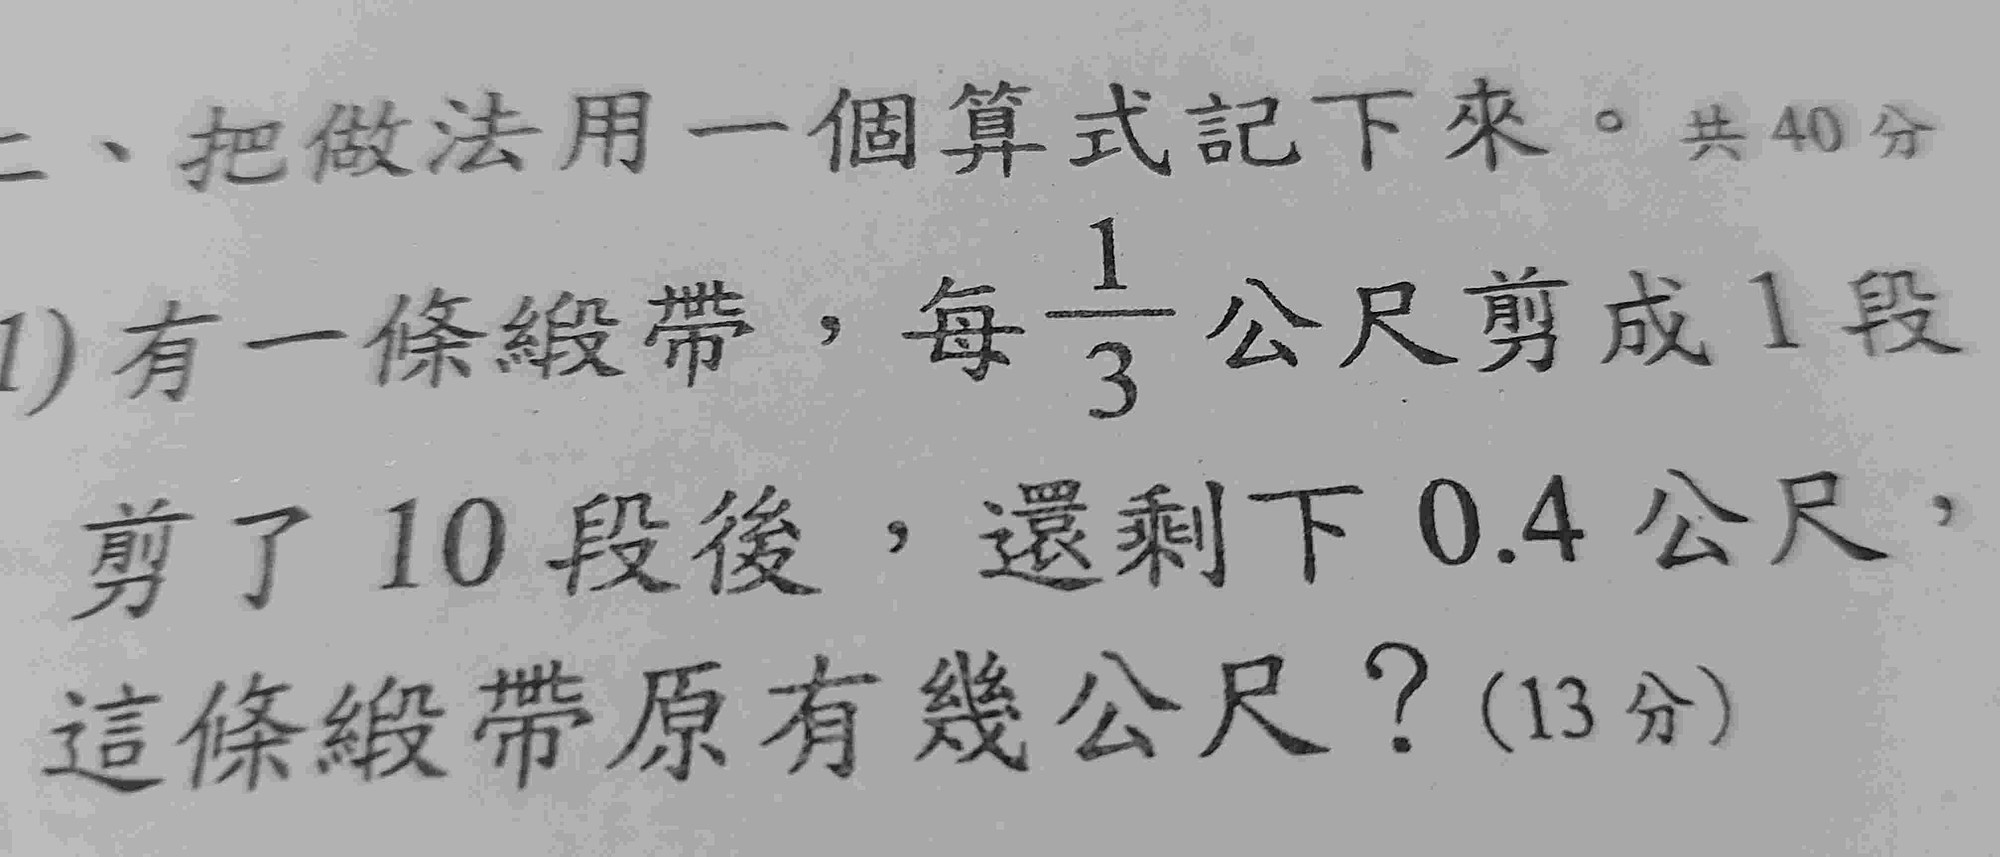 二、把做法用一個算式記下來。共 40 分
1) 有一條緞帶，每 1/3 公尺剪成 1 段
剪了 10 段後，還剩下 0.4 公尺，
這條緞帶原有幾公尺？(13 分)